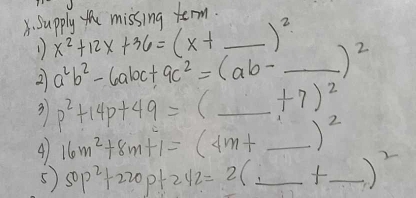 γ. Supply the missing term.
1) x² + 12x + 36 = (x + ___)²
2) a²b² - 6abc + 9c² = (ab - ___)²
3) p² + 14p + 49 = (___ + 7)²
4) 16m² + 8m + 1 = (4m + ___)²
5) 50p² + 220p + 242 = 2(___ + ___)²